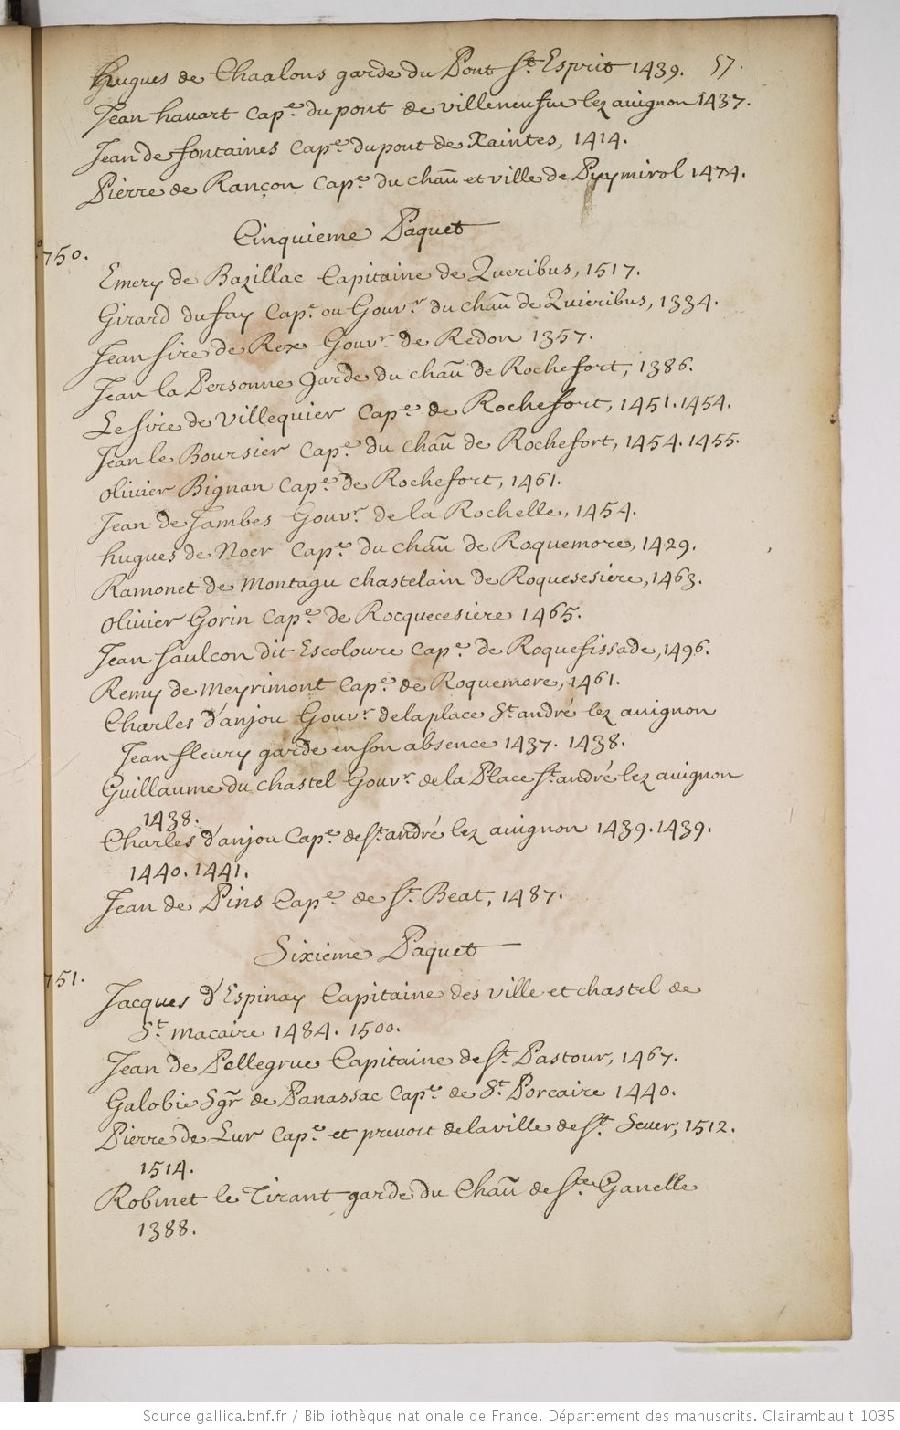 Hugues de Chaalons garde du Pont St. Esprit 1439. 57.
Jean havart Cape. du pont de villeneufve lez avignon 1437.
Jean de fontaines Cape. du pont de Xaintes, 1414.
Pierre de Rançon Cape. du chau et ville de Puymirol 1474.
Cinquieme Paquet
750.
Emery de Bazillac Capitaine de Queribus, 1517.
Girard du fay Cape. ou Gouvr. du chau de Quieribus, 1334.
Jean sire de Rex Gouvr. de Redon 1357.
Jean la Personne garde du chau de Rochefort, 1386.
Le sire de Villequier Cape. de Rochefort, 1451. 1454.
Jean le Boursier Cape. du chau de Rochefort, 1454. 1455.
olivier Bignan Cape. de Rochefort, 1461.
Jean de Jambes Gouvr. de la Rochelle, 1454.
hugues de Noer Cape. du chau de Roquemore, 1429.
Ramonet de Montagu chastelain de Roquesesiere, 1463.
olivier Gorin Cape. de Rocquecesiere 1465.
Jean faulcon dit Escoloure Cape. de Roquefissade, 1496.
Remy de Meyrimont Cape. de Roquemore, 1461.
Charles d'anjou Gouvr. de la place St. andré lez avignon
Jean fleury garde en son absence 1437. 1438.
Guillaume du chastel Gouvr. de la Place St. andré lez avignon
1438.
Charles d'anjou Cape. de St. andré lez avignon 1439. 1439.
1440. 1441.
Jean de Pins Cape. de St. Beat, 1487.
Sixieme Paquet
751.
Jacques d'Espinay Capitaine des ville et chastel de
St. macaire 1484. 1500.
Jean de Pellegrue Capitaine de St. Pastour, 1467.
Galobie Sgr. de Panassac Cape. de St. Porcaire 1440.
Pierre de Lur Cape. et prevost de la ville de St. Sever, 1512.
1514.
Robinet le Tirant garde du Chau de Ste. Ganelle
1388.
Source gallica.bnf.fr / Bibliothèque nationale de France. Département des manuscrits. Clairambault 1035